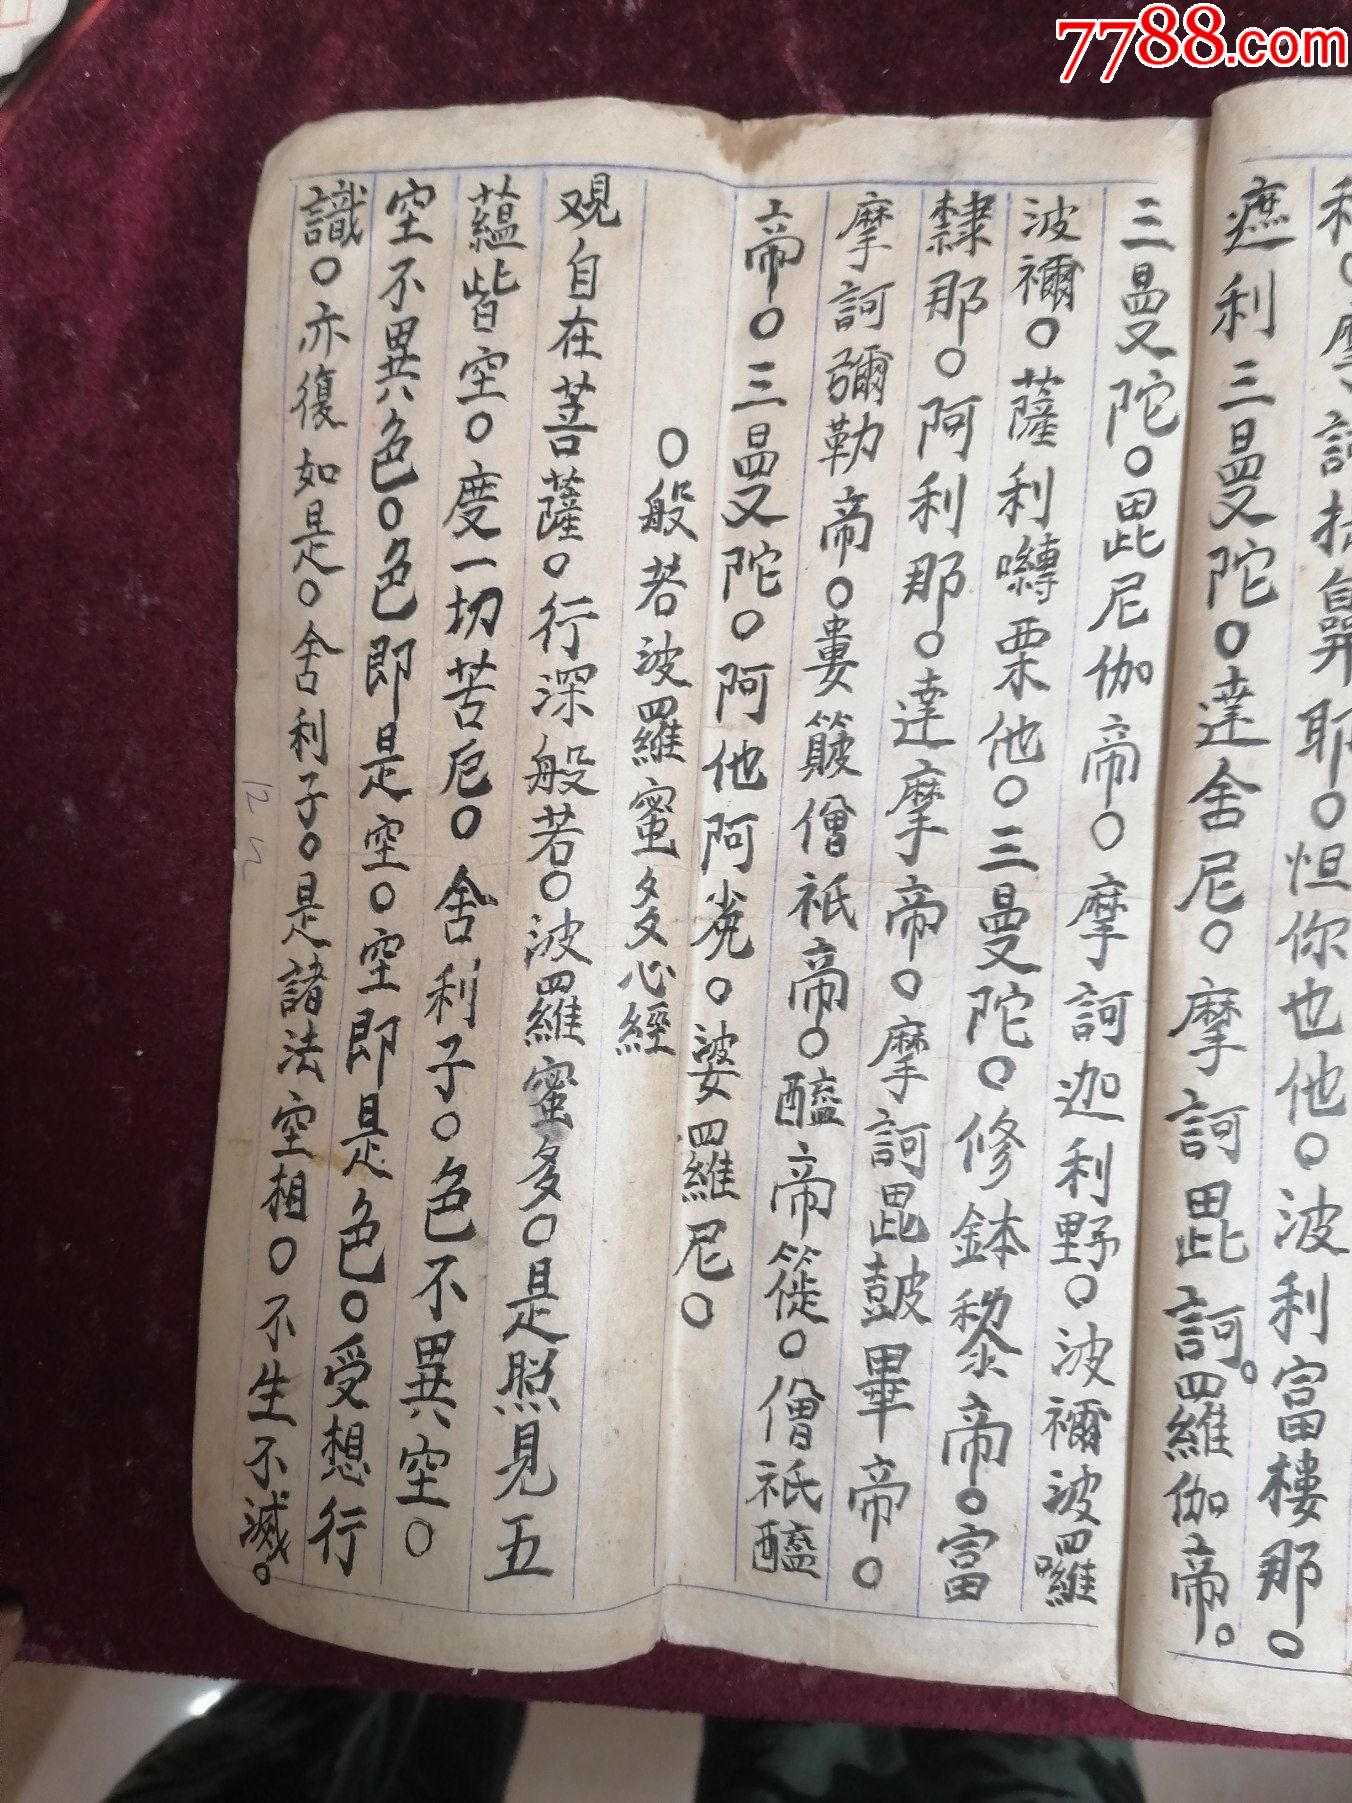 7788.com
摩訶拮鼻耶。怛你也他。波利富樓那。
遮利三曼陀。達舍尼。摩訶毘訶。羅伽帝。
三曼陀。毘尼伽帝。摩訶迦利野。波禰波囉
波禰。薩利嚩栗他。三曼陀。修鉢黎帝。富
隸那。阿利那。達摩帝。摩訶毘鼓畢帝。
摩訶彌勒帝。婁簸僧祇帝。醯帝簁。僧祇醯
帝。三曼陀。阿他阿㝹。婆羅尼。
。般若波羅蜜多心經
观自在菩薩。行深般若。波羅蜜多。是照見五
蘊皆空。度一切苦厄。舍利子。色不異空。
空不異色。色即是空。空即是色。受想行
識。亦復如是。舍利子。是諸法空相。不生不滅。